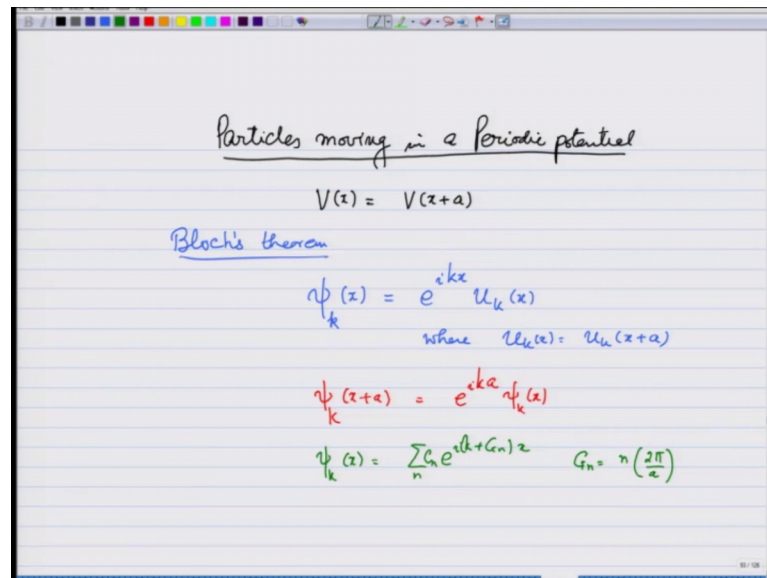 Particles moving in a Periodic potential
V(x) = V(x+a)
Bloch's theorem
ψ_k(x) = e^{ikx} u_k(x)
where u_k(x) = u_k(x+a)
ψ_k(x+a) = e^{ika} ψ_k(x)
ψ_k(x) = ∑_n C_n e^{i(k+G_n)x} G_n = n(2π/a)